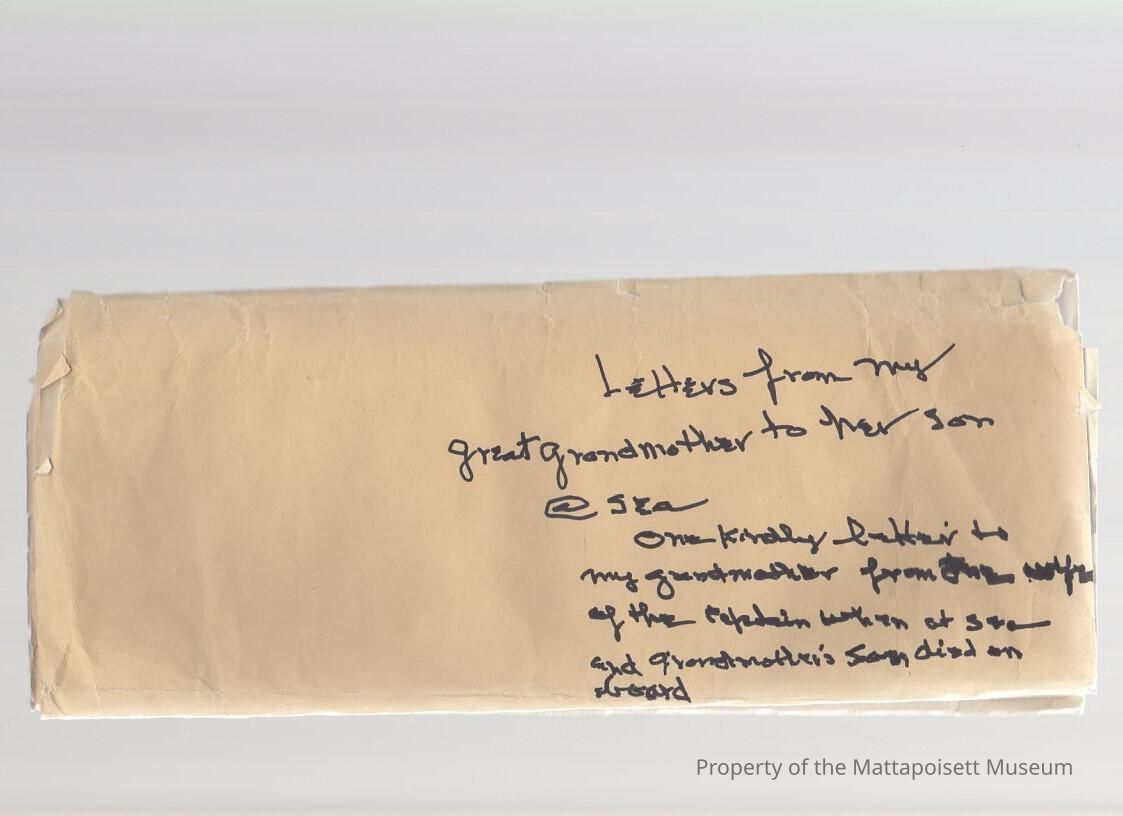 Letters from my
great grandmother to her son
@ sea
One kindly letter to
my grandmother from the wife
of the Captain when at sea
and Grandmother's Son died on
aboard
Property of the Mattapoisett Museum